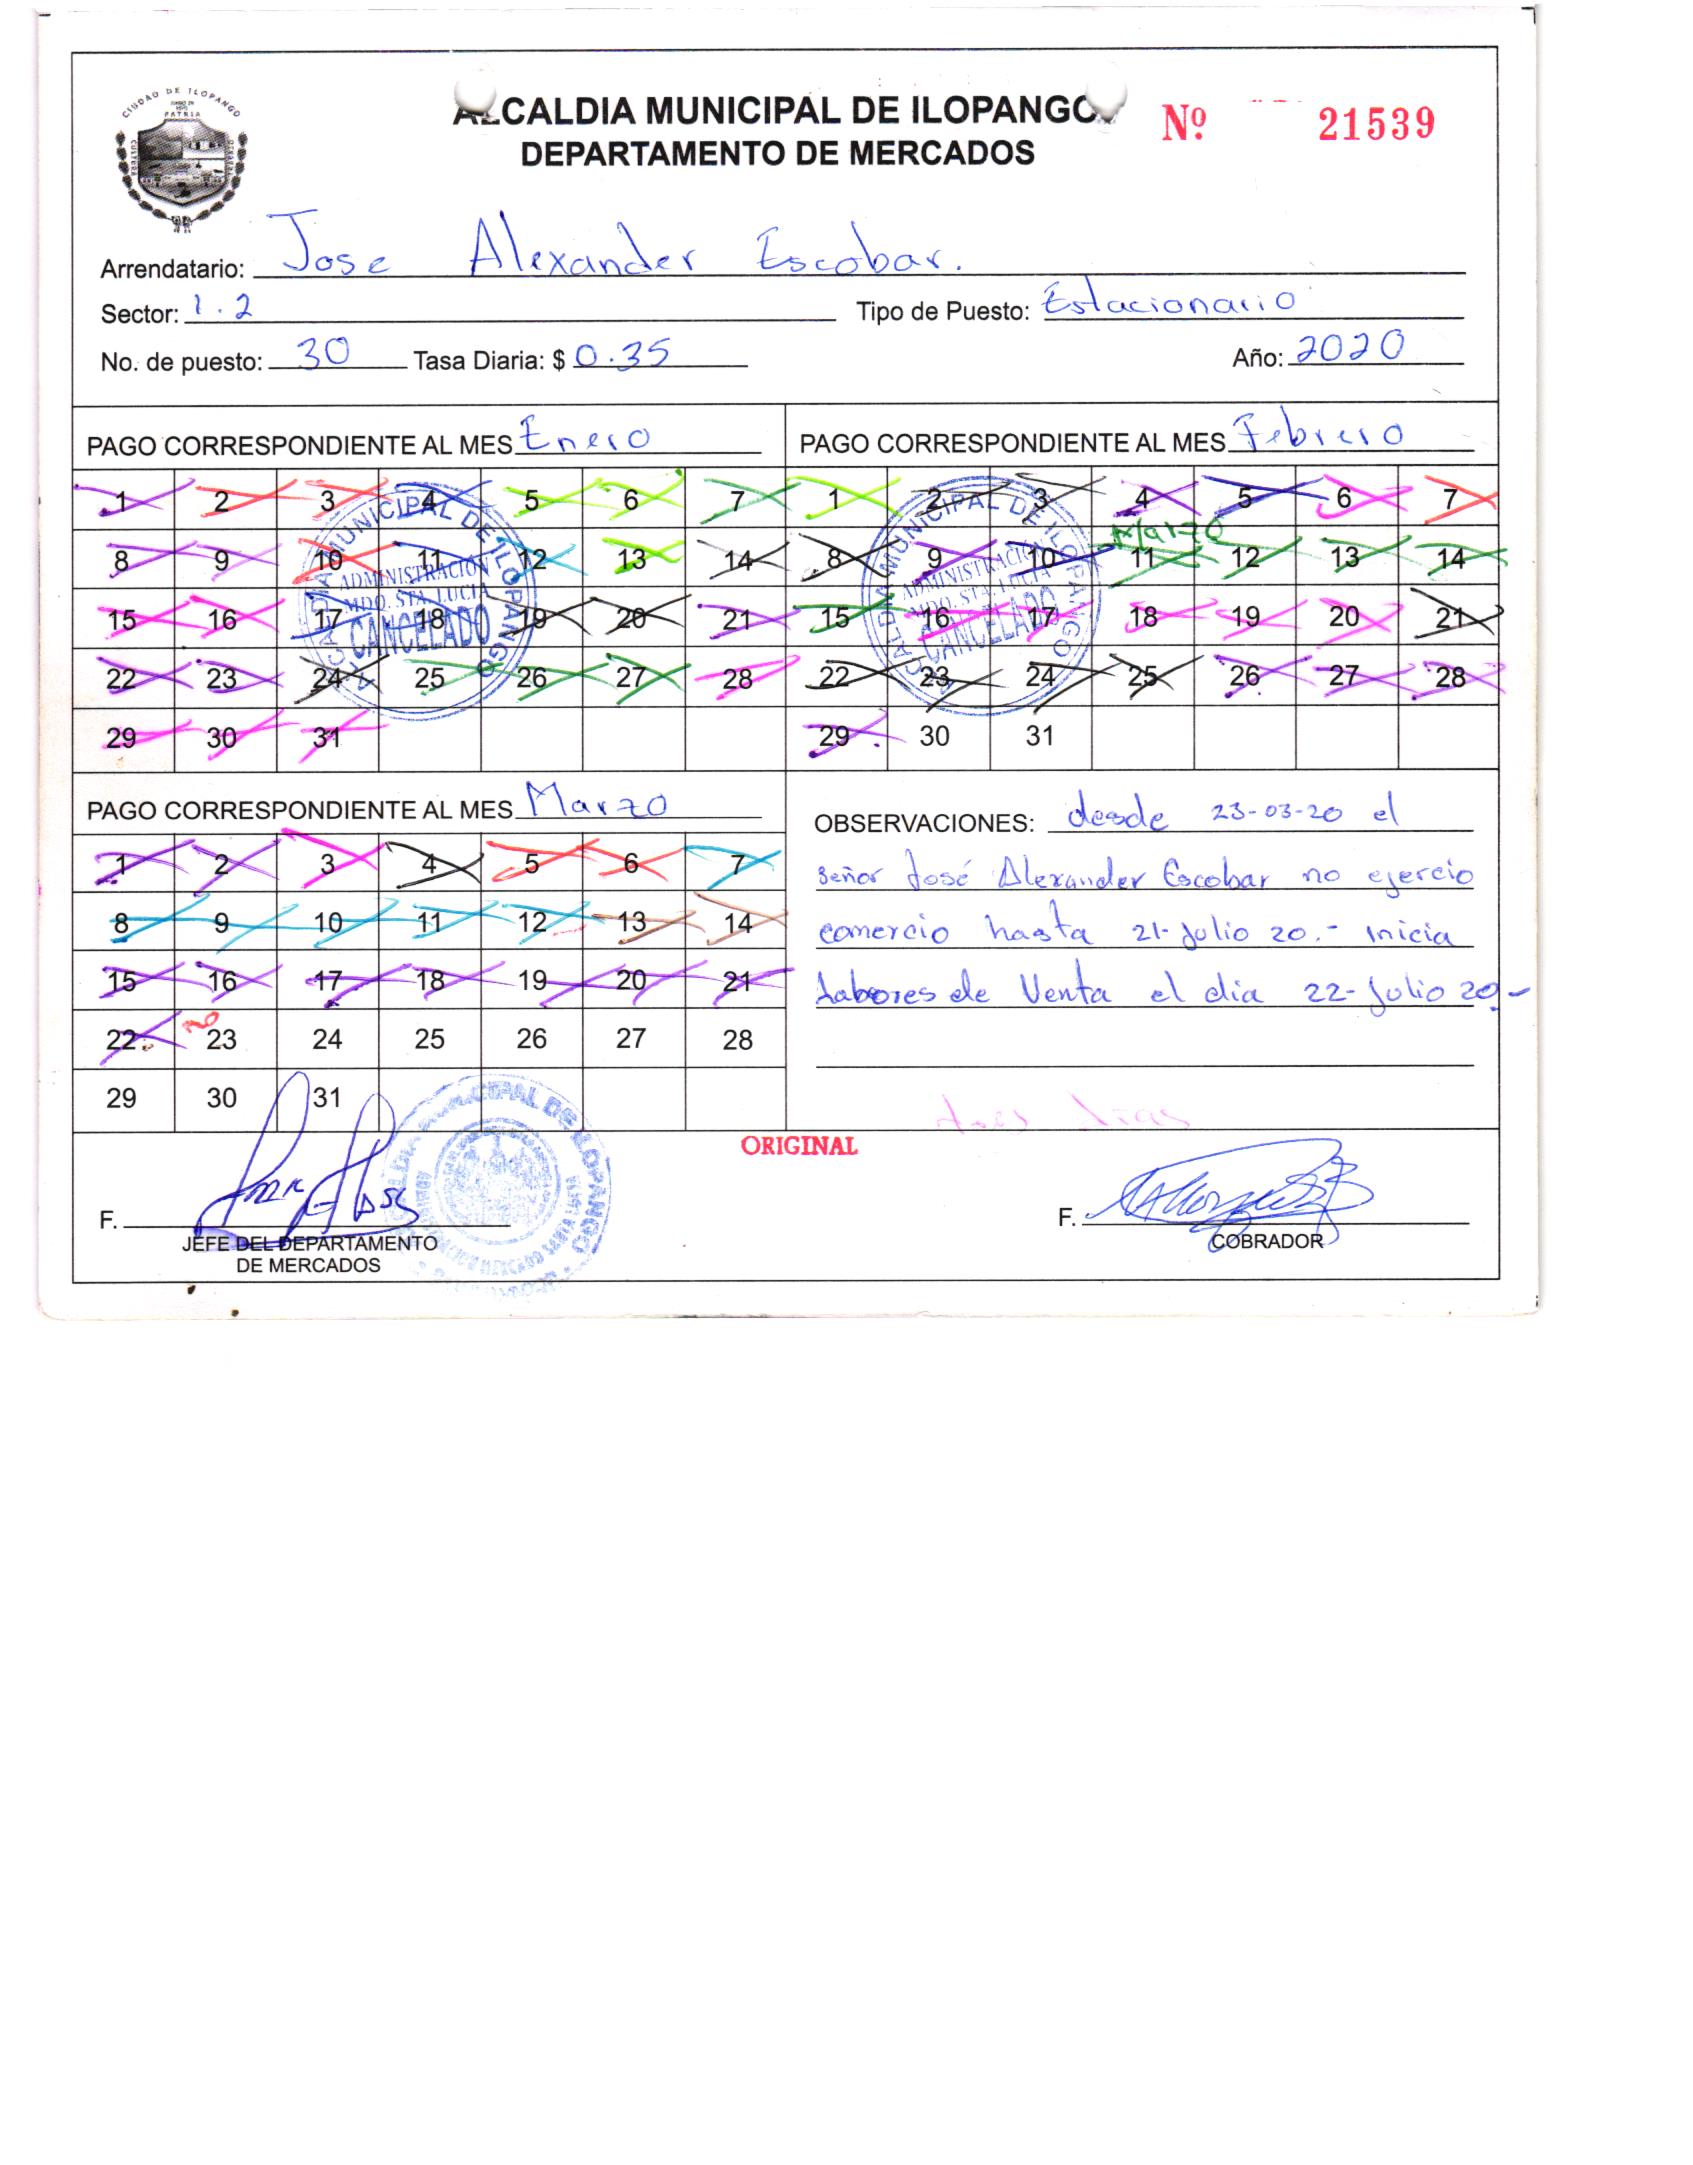 CIUDAD DE ILOPANGO
PATRIA
ALCALDIA MUNICIPAL DE ILOPANGO
DEPARTAMENTO DE MERCADOS
Nº 21539
Arrendatario: Jose Alexander Escobar.
Sector: 1.2 Tipo de Puesto: Estacionario
No. de puesto: 30 Tasa Diaria: $ 0.35 Año: 2020
PAGO CORRESPONDIENTE AL MES Enero
1 2 3 4 5 6 7
8 9 10 11 12 13 14
15 16 17 18 19 20 21
22 23 24 25 26 27 28
29 30 31
ALCALDIA MUNICIPAL DE ILOPANGO
ADMINISTRACIÓN
MDO. STA. LUCIA
CANCELADO
PAGO CORRESPONDIENTE AL MES Febrero
1 2 3 4 5 6 7
8 9 10 11 12 13 14
15 16 17 18 19 20 21
22 23 24 25 26 27 28
29 30 31
ALCALDIA MUNICIPAL DE ILOPANGO
ADMINISTRACIÓN
MDO. STA. LUCIA
CANCELADO
PAGO CORRESPONDIENTE AL MES Marzo
1 2 3 4 5 6 7
8 9 10 11 12 13 14
15 16 17 18 19 20 21
22 23 24 25 26 27 28
29 30 31
OBSERVACIONES: desde 23-03-20 el
señor José Alexander Escobar no ejercio
comercio hasta 21-Julio 20.- Inicia
Labores de Venta el dia 22-Julio 20.-
ORIGINAL
F.
JEFE DEL DEPARTAMENTO
DE MERCADOS
F.
COBRADOR